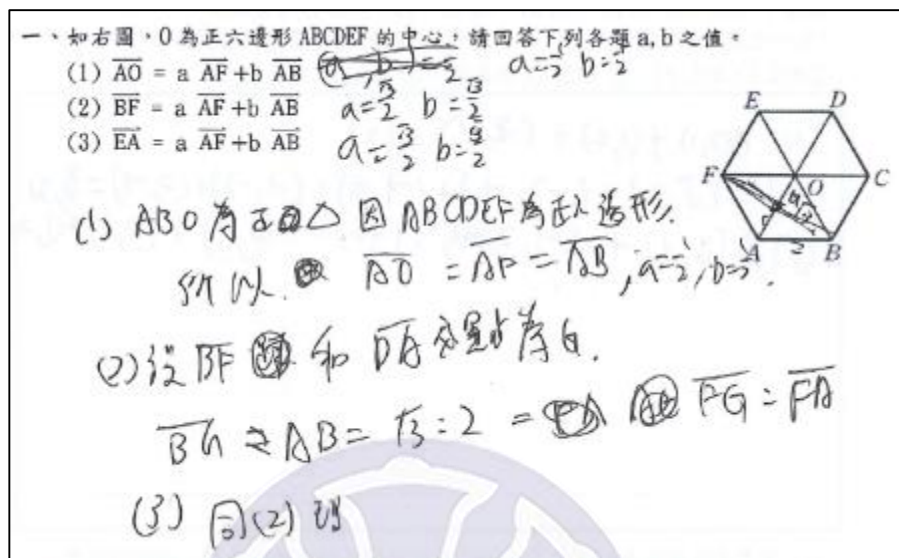 一、如右圖，O 為正六邊形 ABCDEF 的中心，請回答下列各題 a, b 之值。
(1) AO = a AF + b AB a=1/2 b=1/2
(2) BF = a AF + b AB a=√3/2 b=√3/2
(3) EA = a AF + b AB a=√3/2 b=
E D
F O C
A 2 B
(1) ABO 為正△ 因 ABCDEF 為正六邊形.
所以 AO = AF = AB, a=1/2, b=1/2.
(2) 設 BF 和 OA 交點為 G.
BG : AB = √3 : 2 = FG = FA
(3) 同(2)理